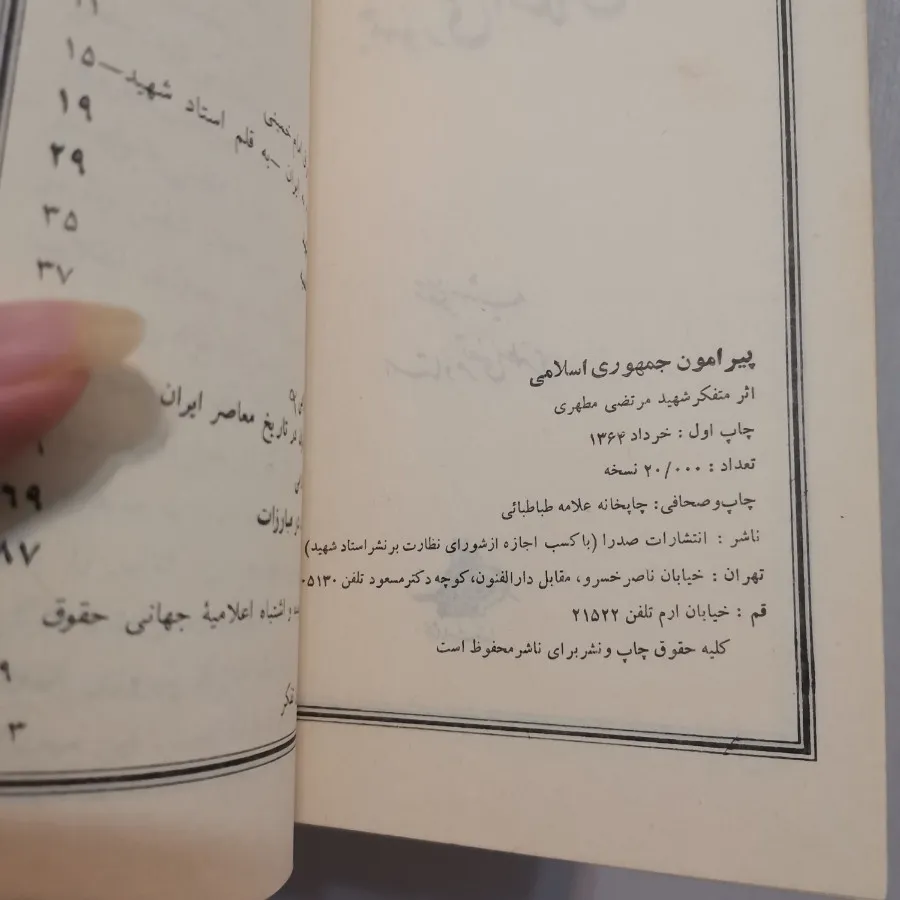 پیرامون جمهوری اسلامی
اثر متفکر شهید مرتضی مطهری
چاپ اول : خرداد ۱۳۶۴
تعداد : ۲۰/۰۰۰ نسخه
چاپ و صحافی: چاپخانه علامه طباطبائی
ناشر : انتشارات صدرا (با کسب اجازه از شورای نظارت بر نشر استاد شهید)
تهران : خیابان ناصر خسرو، مقابل دارالفنون، کوچه دکتر مسعود تلفن ۰۵۱۳۰
قم : خیابان ارم تلفن ۲۱۵۲۲
کلیه حقوق چاپ و نشر برای ناشر محفوظ است
۱۱
امام خمینی
ایران – به قلم استاد شهید – ۱۵
۱۹
۲۹
۳۵
۳۷
در تاریخ معاصر ایران
۶۹
مبارزات
۸۷
اشتباه اعلامیهٔ جهانی حقوق
۹
تفکر
۳